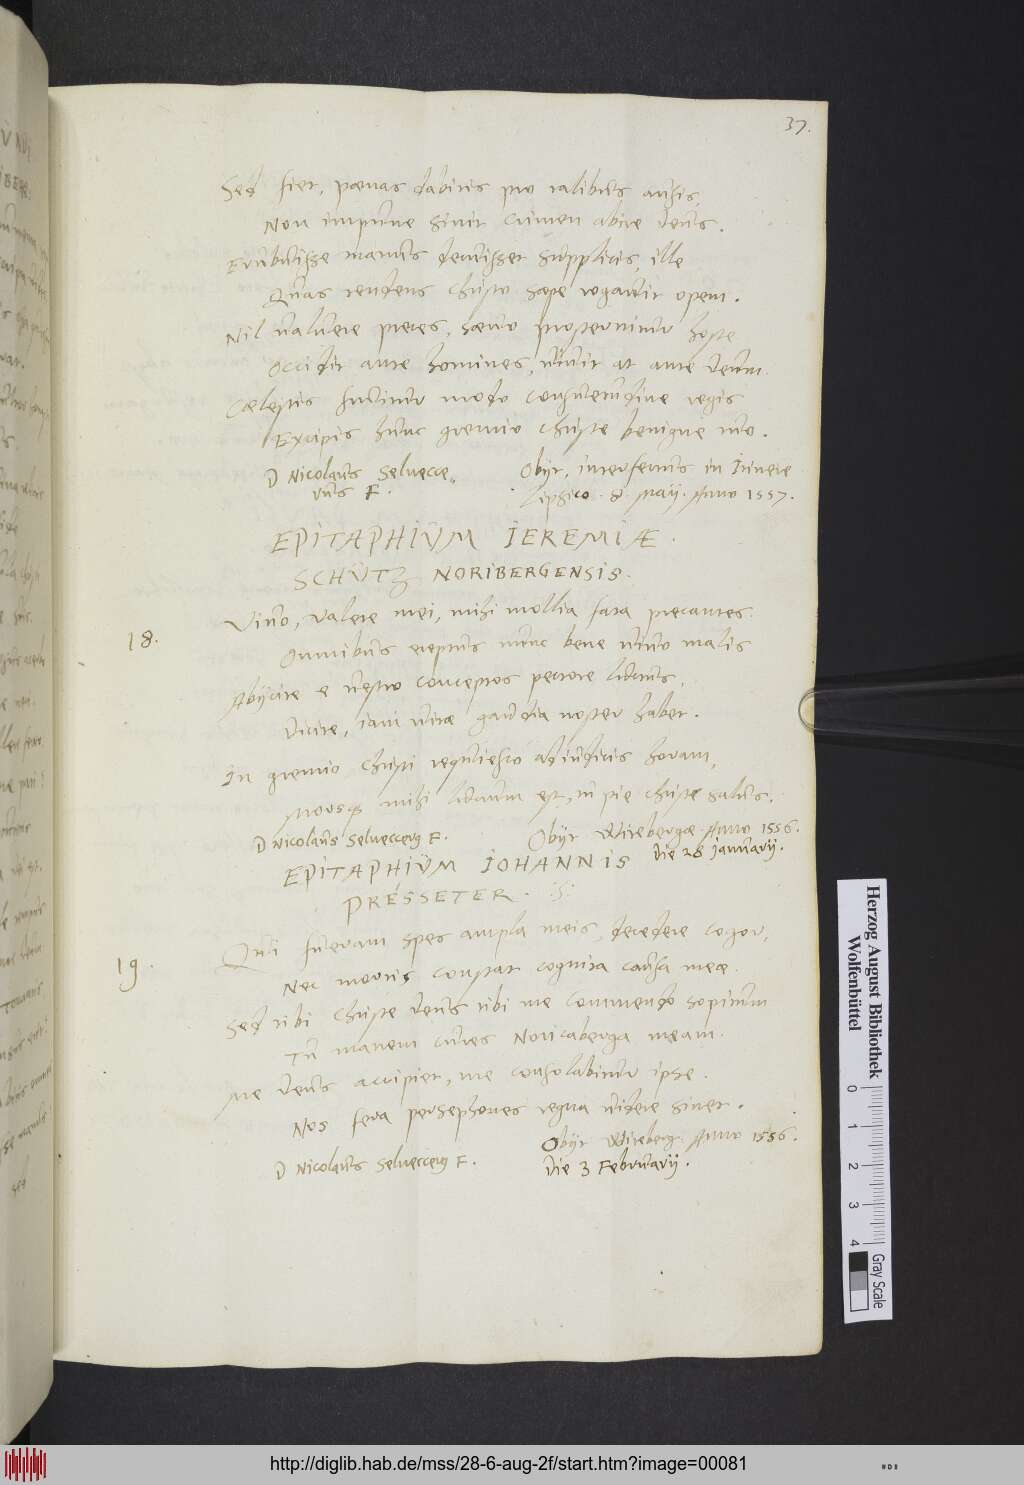 37.
Sed fiet, poenas dabitis pro talibus ausis,
Non impune sinit crimen abire deus.
Erubuisse manus decuisset supplicis, ille
Quas tendens Christo saepe rogavit opem.
Nil valuere preces, saevo prosternitur hoste
Occidit ante homines, vivit at ante deum.
Caelestis fruitur modo consuetudine regis
Excipis hunc gremio Christe benigne tuo.
D Nicolaus Selnecce„ Obijt, interfectus in Itinere
rus F. Lipsico. 8. Maij. Anno 1557.
EPITAPHIUM IEREMIÆ
SCHÜTZ NORIBERGENSIS.
18.
Vivo, valete mei, mihi mollia fata precantes.
Omnibus ereptus nunc bene vivo malis
Abijcite e vestro conceptos pectore luctus,
Dicite, iam vitae gaudia noster habet.
In gremio Christi requiesco
Morsque mihi lucrum est, tu pie Christe salus.
D Nicolaus Selneccerus F. Obijt Witebergae. Anno 1556.
Die 28 Januarij.
EPITAPHIUM IOHANNIS
PRESSETER. .S.
19.
Qui fueram spes ampla meis, decedere cogor,
Nec mortis constat cognita causa meae.
Sed tibi Christe deus tibi me commendo sopitum
Tu matrem cures Noricaberga meam.
Me deus accipiet, me consolabitur ipse.
Nos fera persephones regna videre sinet.
Obijt Witeberg: Anno 1556.
D Nicolaus Selneccerus F. Die 3 Februarij.
Herzog August Bibliothek
Wolfenbüttel
0 1 2 3 4
Gray Scale
http://diglib.hab.de/mss/28-6-aug-2f/start.htm?image=00081